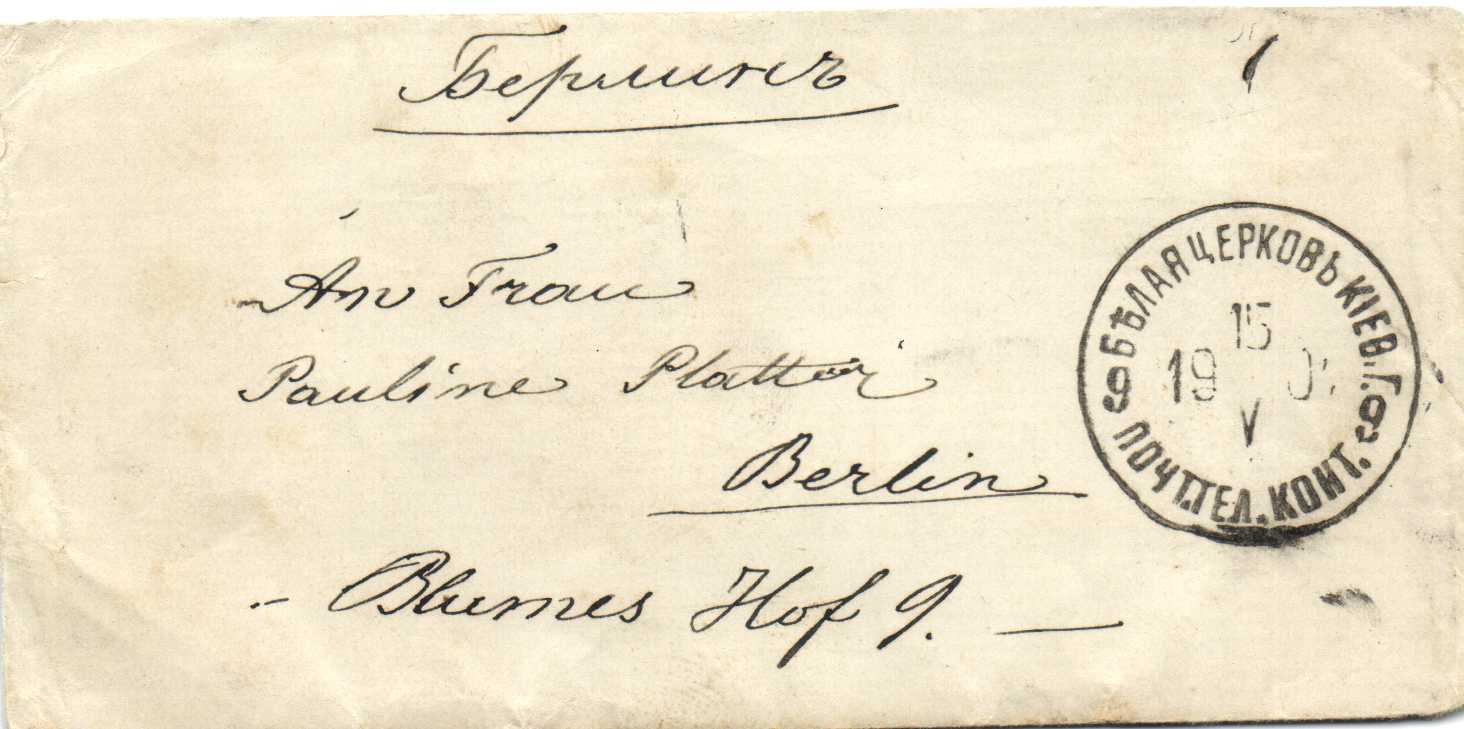 Берлинъ
An Frau
Pauline
Berlin
- Blumes Hof 9. —
БѢЛАЯ ЦЕРКОВЬ КІЕВ.Г.
15
19 0
V
9 9
ПОЧТ.ТЕЛ.КОНТ.